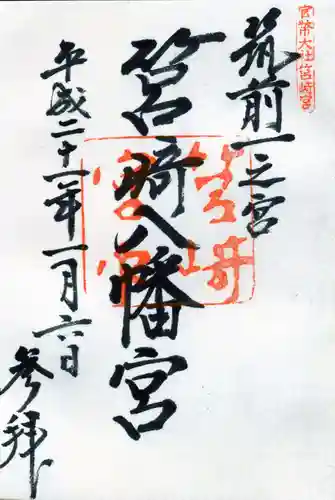 官幣大社筥崎宮
筑前一之宮
筥崎八幡宮
平成二十一年一月六日
参拜